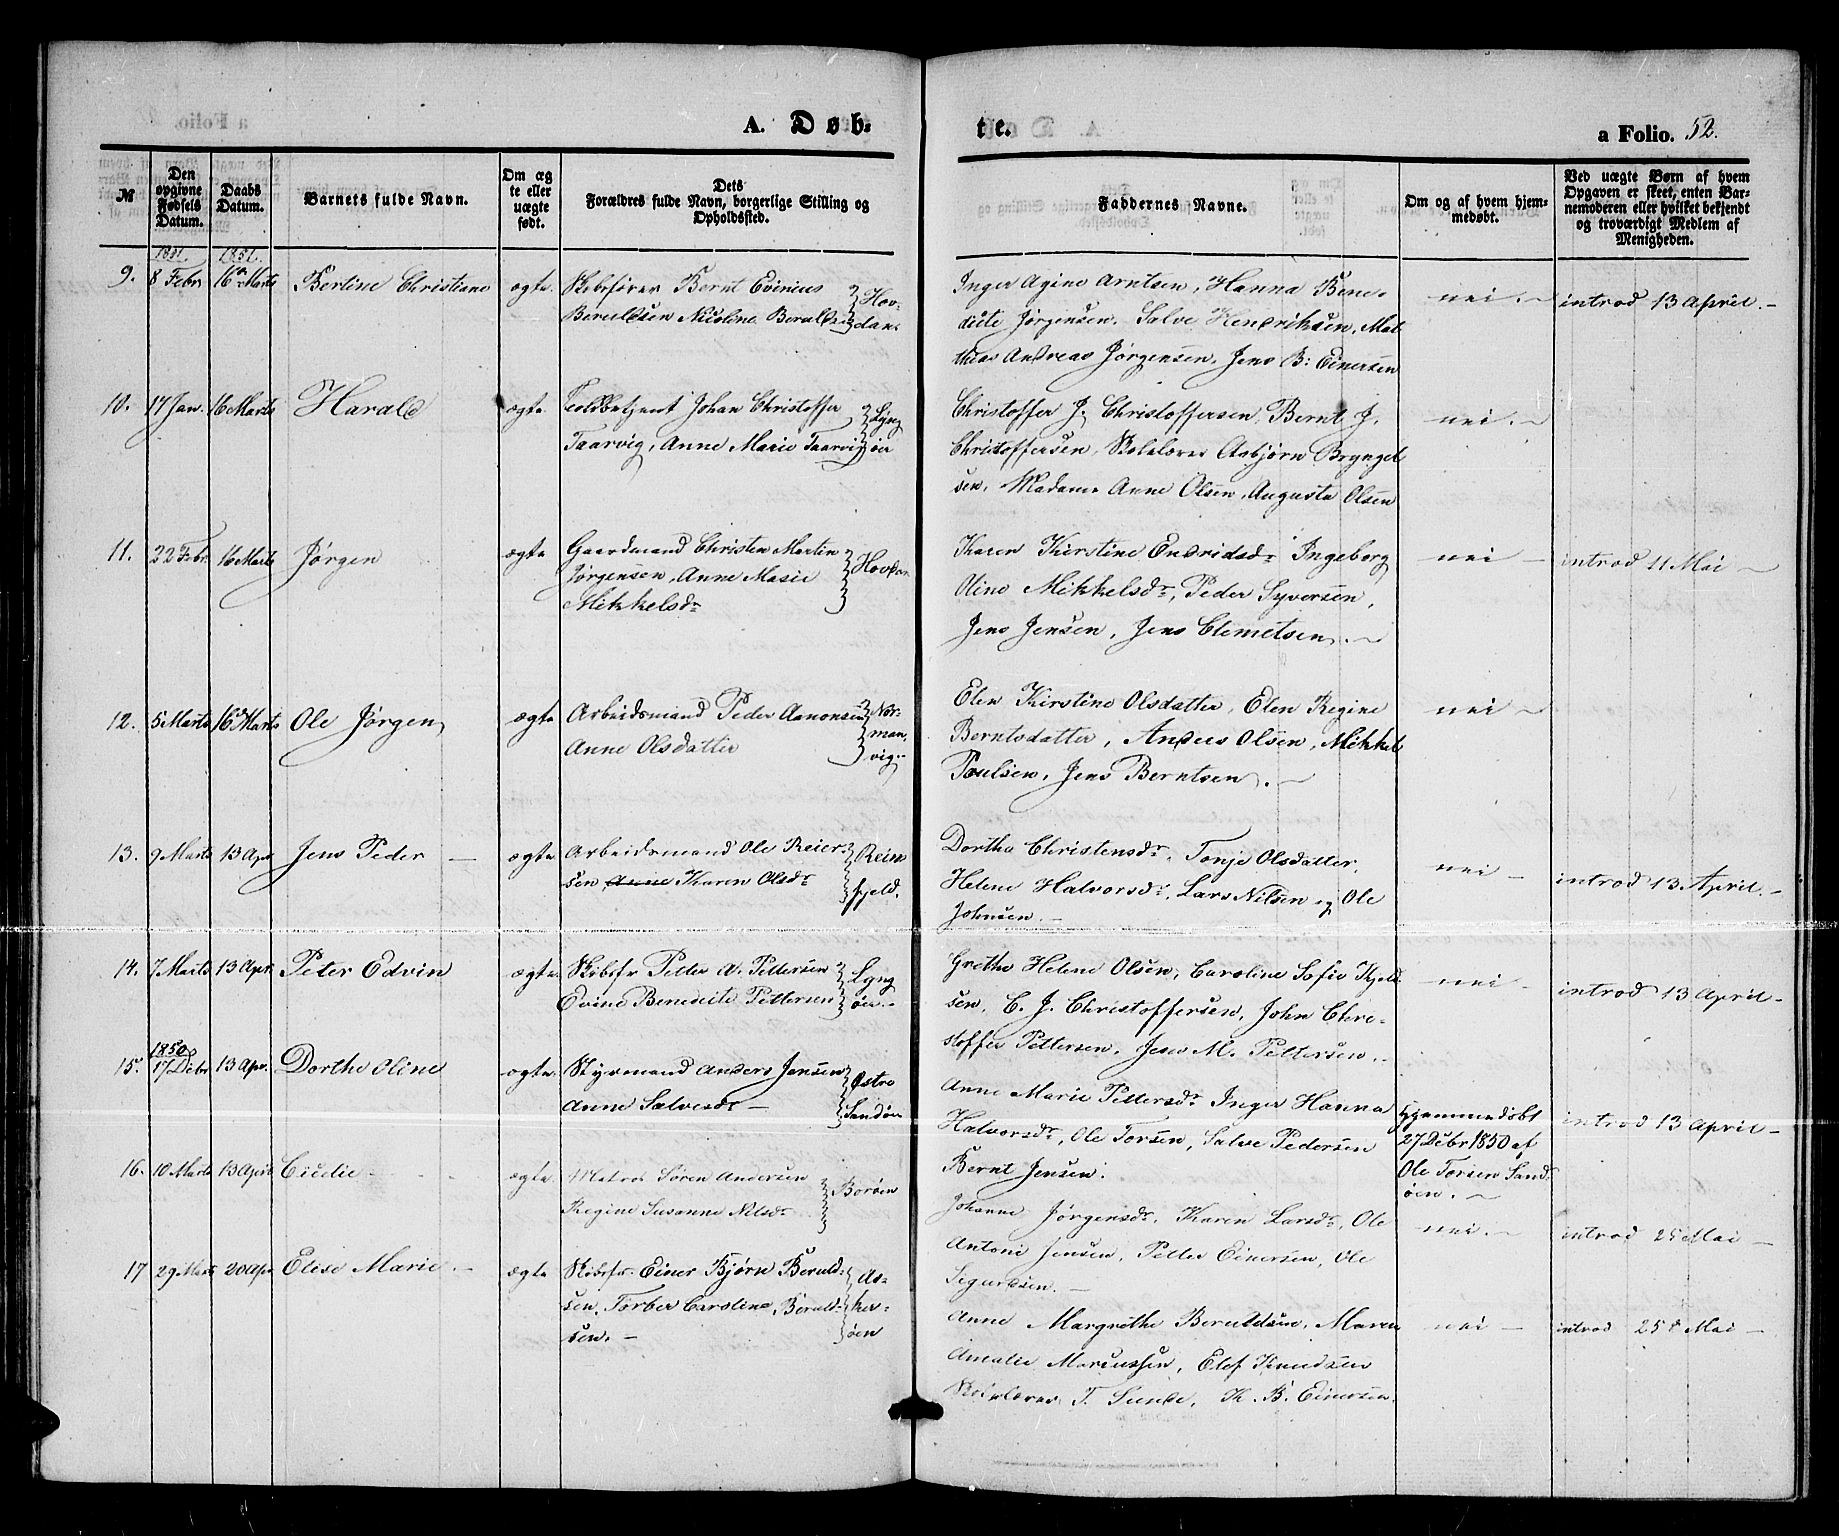 A. Døb-
te.
a Folio. 52.
№
Den opgivne Fødsels Datum.
Daabs Datum.
Barnets fulde Navn.
Om ægte eller uægte født.
Dets Forældres fulde Navn, borgerlige Stilling og Opholdssted.
Faddernes Navne.
Om og af hvem hjemmedøbt.
Ved uægte Børn af hvem Opgaven er skeet, enten Barnemoderen eller hvilket bekjendt og troværdigt Medlem af Menigheden.
1851. 1851.
9. 8 Febr 16 Marts Bertine Christiane ægte Skibsfører Bernt Evinius
Beruldsen Nicoline Beruldsen Hov-
dan.
Inger Agine Arntsen, Hanna Bene-
dicte Jørgensen. Salve Hendriksen, Mat
thias Andreas Jørgensen, Jens B: Einersen
nei. introd 13 April.
10. 17 Jan. 16 Marts Harald ægte Toldbetjent Johan Christoffer
Taarvig, Anne Marie Taarvig Lyng
øer
Christoffer J. Christoffersen, Bernt J.
Christoffersen, Skolelærer Asbjørn Bryngel
sen, Madame Anne Olsen, Augusta Olsen
nei.
11. 22 Febr 16 Marts Jørgen ægte Gaardmand Christen Martin
Jørgensen, Anne Marie
Mikkelsdr Hovdan
Karen Kirstine Endridsdr Ingeborg
Oline Mikkelsdr, Peder Syversen,
Jens Jensen, Jens Clemetsen.
nei introd 11 Mai
12. 5 Marts 16 Marts Ole Jørgen ægte Arbeidsmand Peder Aanonsen
Anne Olsdatter Nor-
man,
vig
Elen Kirstine Olsdatter, Elen Regine
Berntsdatter, Anders Olsen, Mikkel
Poulsen, Jens Berntsen.
nei
13. 9 Marts 13 Apr Jens Peder ægte Arbeidsmand Ole Reier
sen Anne Karen Olsdr Reins
fjeld.
Dorthe Christensdr, Tonje Olsdatter,
Helene Halvorsdr, Lars Nilsen og Ole
Johnsen.
nei introd 13 April.
14. 7 Marts 13 Apr. Peter Edvin ægte Skibsfr Petter A. Pettersen
Edvine Benedicte Pettersen Lyng
øer.
Grethe Helene Olsen, Caroline Sofie Kjeld
sen, C. J. Christoffersen, John Chri-
stoffer Pettersen, Jens M. Pettersen.
nei introd 13 April
1850
15. 17 Debr 13 Apr. Dorthe Oline ægte Styrmand Anders Jensen
Anne Salvesdr Østre
Sandøen
Anne Marie Pettersdr Inger Hanna
Halvorsdr, Ole Torsen, Salve Pedersen
Bernt Jensen.
Hjemmedøbt
27 Debr 1850 af
Ole Torsen Sand
øen.
introd 13 April
16. 10 Marts 13 Apr Cicilie ægte Matros Søren Andersen
Regine Susanne Nilsdr Borøen
Johanne Jørgensdr, Karen Larsdr, Ole
Antoni Jensen, Petter Einersen, Ole
Sigurdsen.
nei. introd 25 Mai
17 29 Marts 20 Apr Elise Marie ægte Skibsfr. Einer Bjørn Beruld-
sen, Torber Caroline, Beruld-
sen. As-
ker-
øen
Anne Margrethe Beruldsen, Maren
Amalie Marcussen, Elef Knudsen
Skolelærer T. Sunde, K. B. Einersen.
nei introd 25 Mai